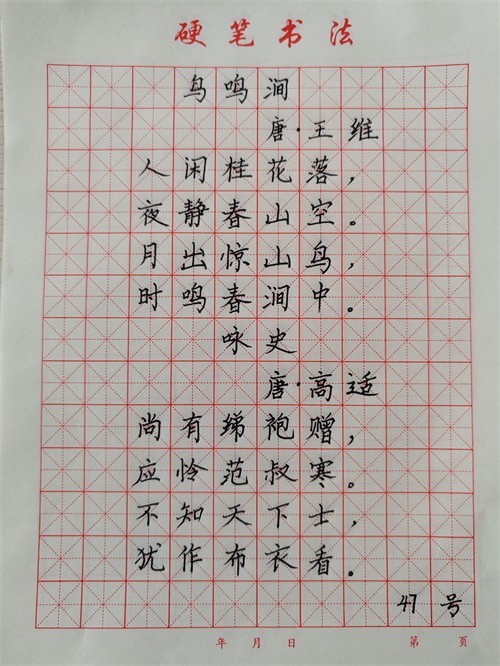 硬笔书法
鸟鸣涧
唐·王维
人闲桂花落，
夜静春山空。
月出惊山鸟，
时鸣春涧中。
咏史
唐·高适
尚有绨袍赠，
应怜范叔寒。
不知天下士，
犹作布衣看。
47号
年 月 日 第 页